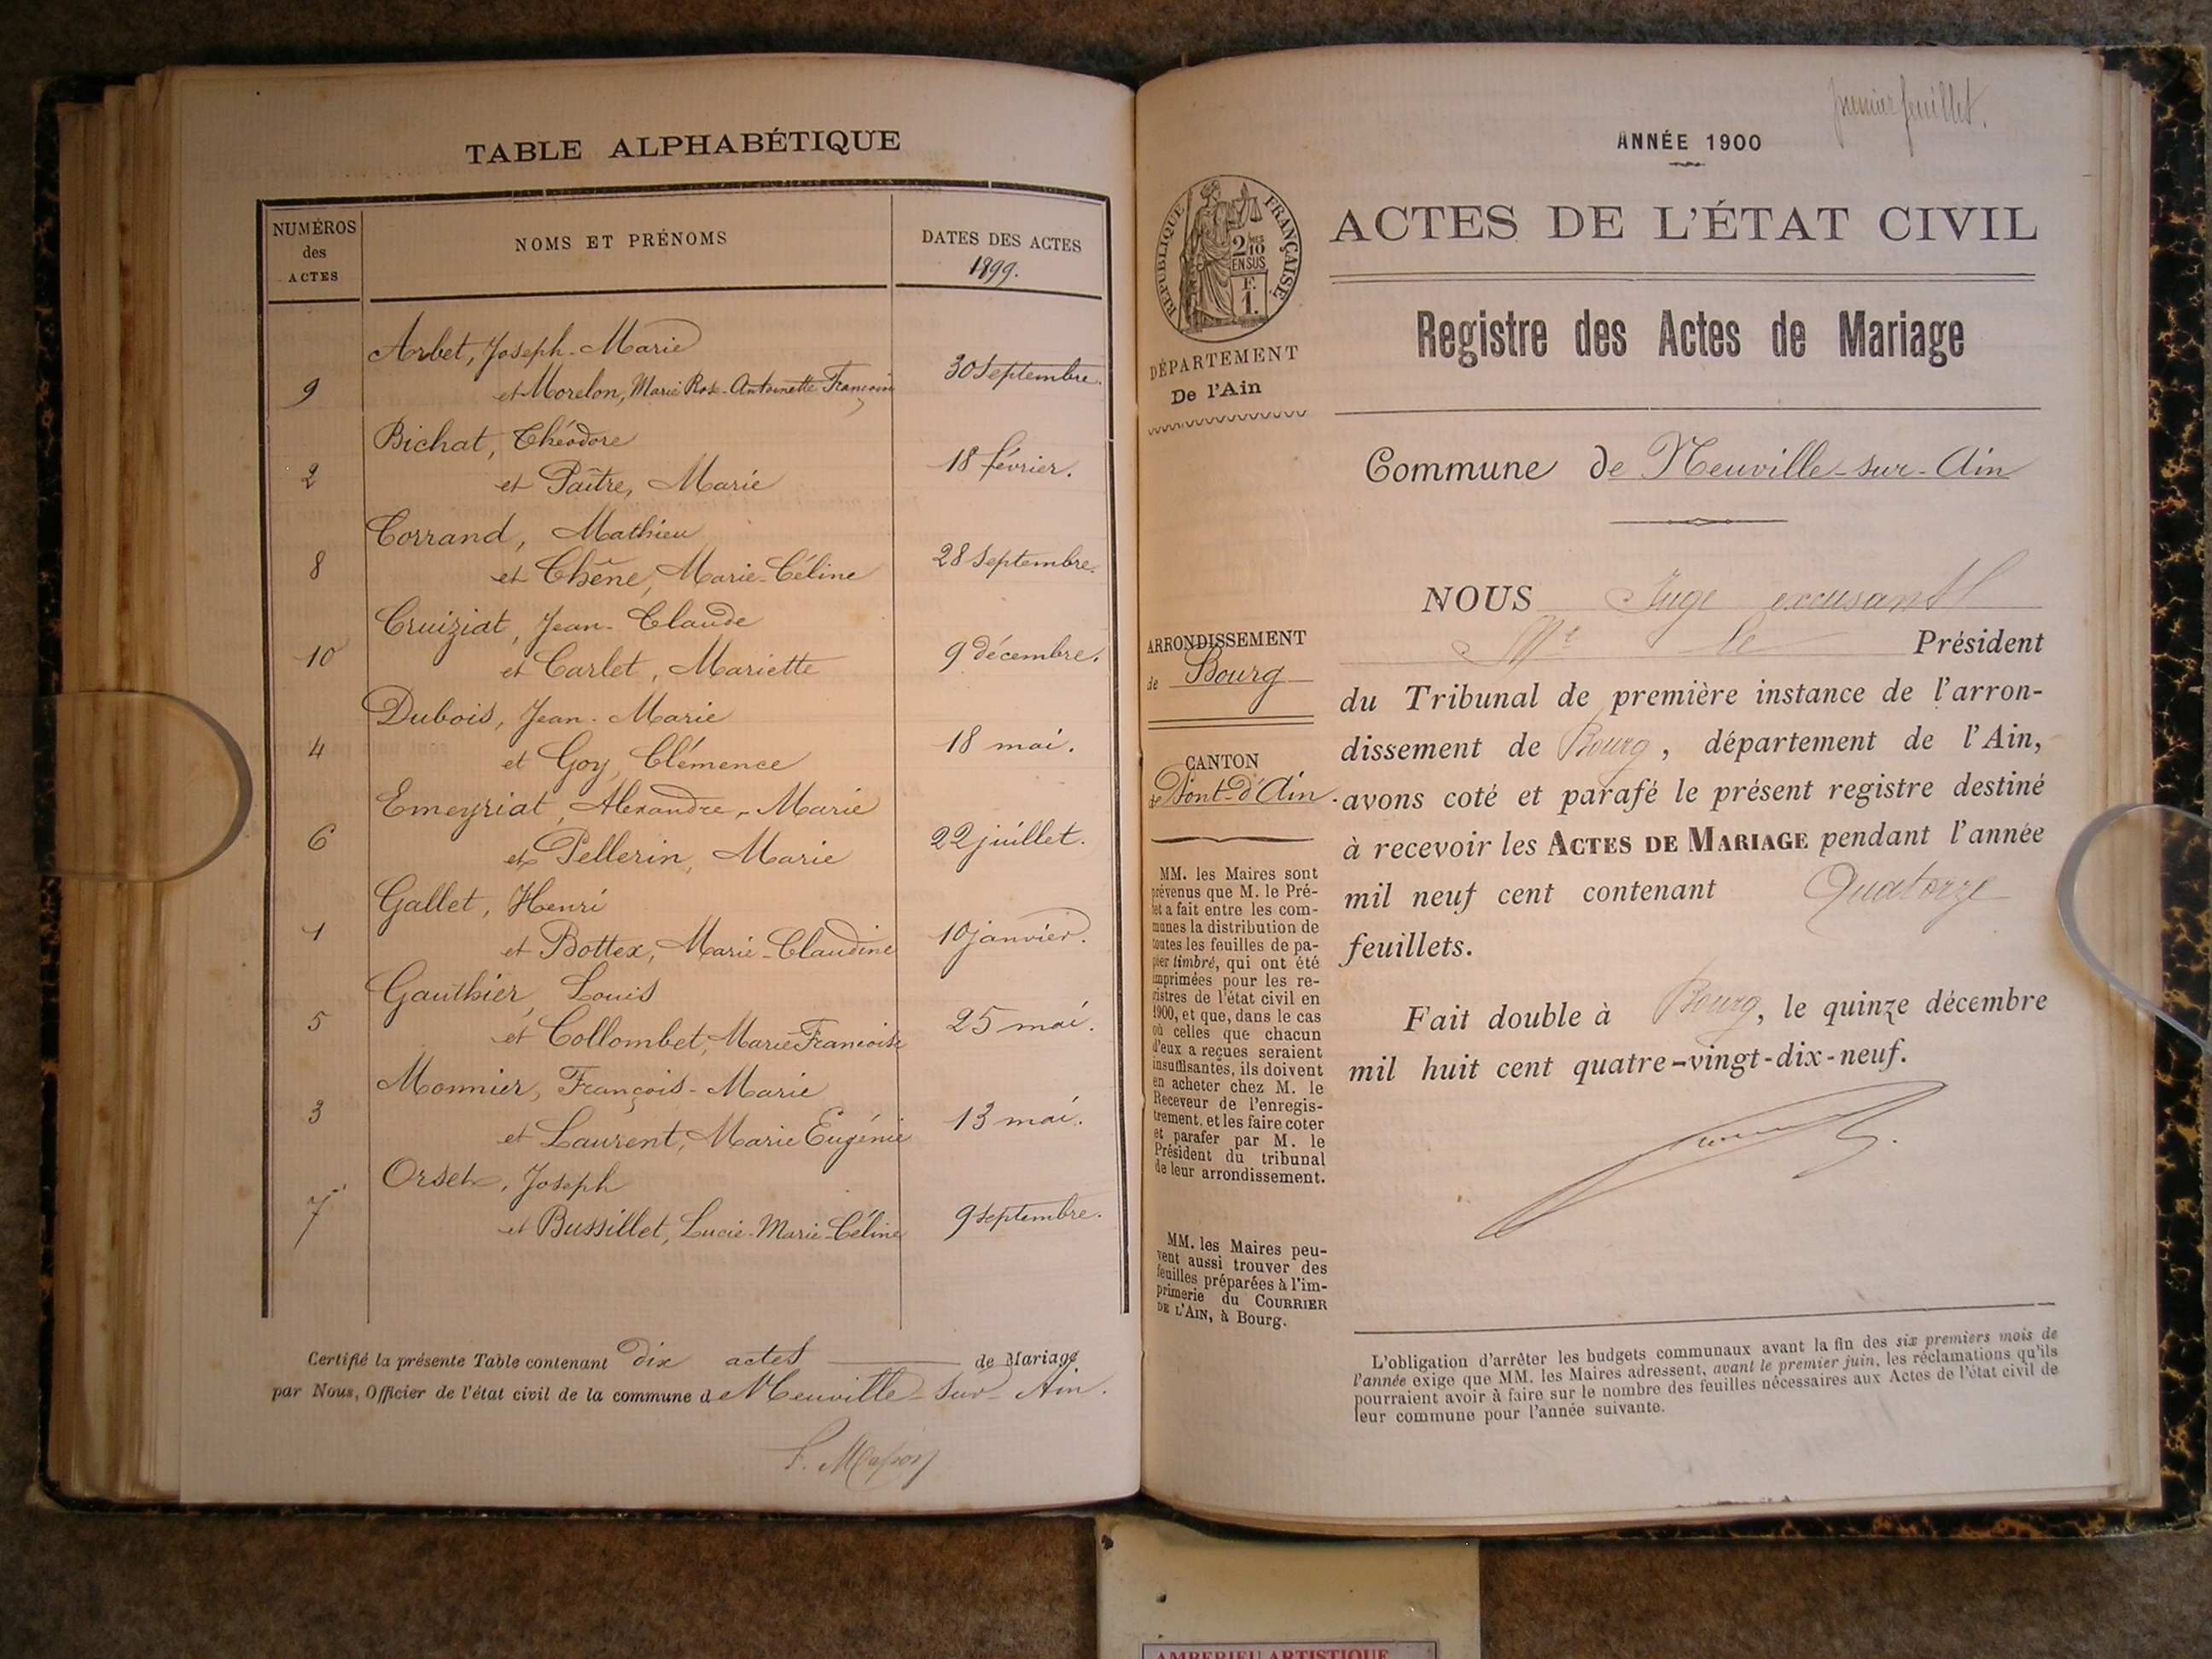 TABLE ALPHABÉTIQUE
NUMÉROS
des
ACTES
NOMS ET PRÉNOMS
DATES DES ACTES
1899.
Arbet, Joseph-Marie
9 et Morelon, Marie Rose-Antoinette Françoise 30 Septembre.
Bichat, Théodore
2 et Paître, Marie 18 février.
Corrand, Mathieu
8 et Chêne, Marie-Céline 28 Septembre.
Cruiziat, Jean-Claude
10 et Carlet, Mariette 9 décembre.
Dubois, Jean-Marie
4 et Goy, Clémence 18 mai.
Emeyriat, Alexandre-Marie
6 et Pellerin, Marie 22 juillet.
Gallet, Henri
1 et Bottex, Marie-Claudine 10 janvier.
Gauthier, Louis
5 et Collombet, Marie Françoise 25 mai.
Monnier, François-Marie
3 et Laurent, Marie Eugénie 13 mai.
Orset, Joseph
7 et Bussillet, Lucie-Marie-Céline 9 septembre.
Certifié la présente Table contenant dix actes de Mariage
par Nous, Officier de l'état civil de la commune de Neuville-sur-Ain.
premier feuillet.
ANNÉE 1900
RÉPUBLIQUE FRANÇAISE
2/10 MES
EN SUS
F.
1.
ACTES DE L'ÉTAT CIVIL
Registre des Actes de Mariage
DÉPARTEMENT
De l'Ain
Commune de Neuville-sur-Ain
ARRONDISSEMENT
de Bourg
CANTON
de Pont-d'Ain.
MM. les Maires sont
prévenus que M. le Pré-
fet a fait entre les com-
munes la distribution de
toutes les feuilles de pa-
pier timbré, qui ont été
imprimées pour les re-
gistres de l'état civil en
1900, et que, dans le cas
où celles que chacun
d'eux a reçues seraient
insuffisantes, ils doivent
en acheter chez M. le
Receveur de l'enregis-
trement, et les faire coter
et parafer par M. le
Président du tribunal
de leur arrondissement.
MM. les Maires peu-
vent aussi trouver des
feuilles préparées à l'im-
primerie du COURRIER
DE L'AIN, à Bourg.
NOUS Juge excusant
Mr le Président
du Tribunal de première instance de l'arron-
dissement de Bourg, département de l'Ain,
avons coté et parafé le présent registre destiné
à recevoir les ACTES DE MARIAGE pendant l'année
mil neuf cent contenant Quatorze
feuillets.
Fait double à Bourg, le quinze décembre
mil huit cent quatre-vingt-dix-neuf.
L'obligation d'arrêter les budgets communaux avant la fin des six premiers mois de
l'année exige que MM. les Maires adressent, avant le premier juin, les réclamations qu'ils
pourraient avoir à faire sur le nombre des feuilles nécessaires aux Actes de l'état civil de
leur commune pour l'année suivante.
AMBERIEU ARTISTIQUE